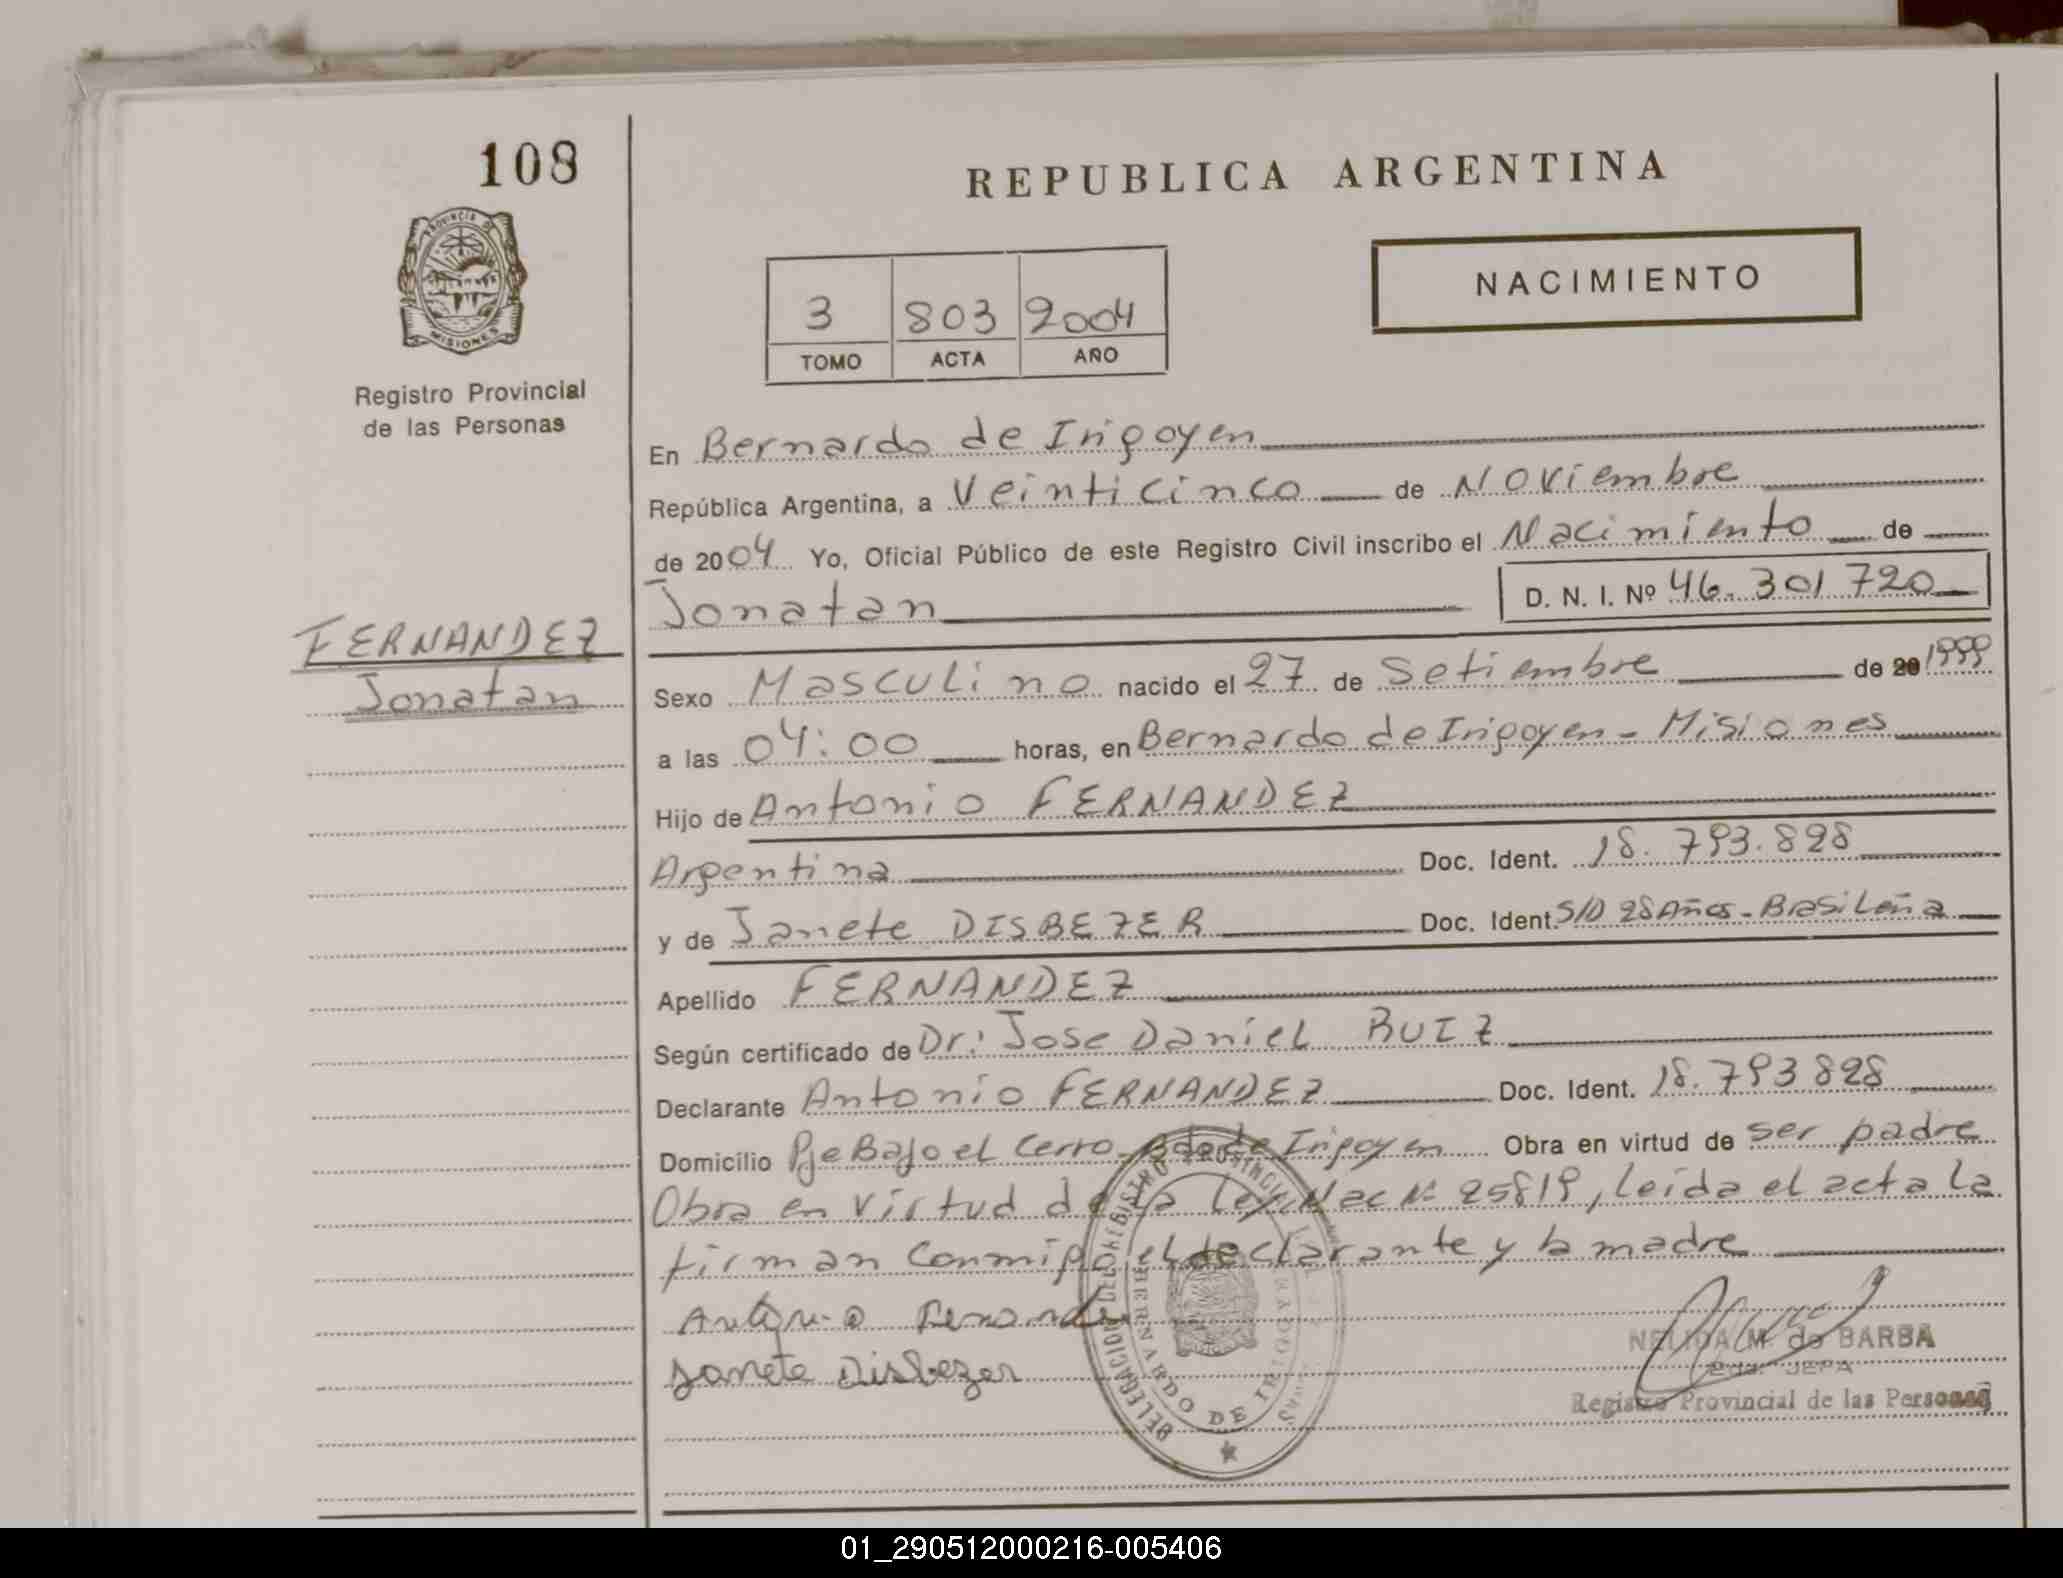 108
REPUBLICA ARGENTINA
PROVINCIA DE
MISIONES
NACIMIENTO
3 803 2004
TOMO ACTA AÑO
Registro Provincial
de las Personas
En Bernardo de Irigoyen
República Argentina, a Veinticinco de Noviembre
de 2004 Yo, Oficial Público de este Registro Civil inscribo el Nacimiento de
Jonatan D. N. I. Nº 46.301720
FERNANDEZ
Jonatan
Sexo Masculino nacido el 27 de Setiembre de 20 1999
a las 04:00 horas, en Bernardo de Irigoyen - Misiones
Hijo de Antonio FERNANDEZ
Argentina Doc. Ident. 18.793.828
y de Janete DISBEZER Doc. Ident. S/D 28 Años - Brasileña
Apellido FERNANDEZ
Según certificado de Dr: Jose Daniel RUIZ
Declarante Antonio FERNANDEZ Doc. Ident. 18.793828
Domicilio Pje Bajo el Cerro - Bdo de Irigoyen Obra en virtud de ser padre
Obra en virtud de la Ley Nac Nº 25819, leida el acta la
firman conmigo el declarante y la madre
Antonio Fernande
Janete Disbezer
DELEGACION DEL REGISTRO PROVINCIAL
BERNARDO DE
NELIDA M. de BARBA
JEFA
Registro Provincial de las Personas
01_290512000216-005406